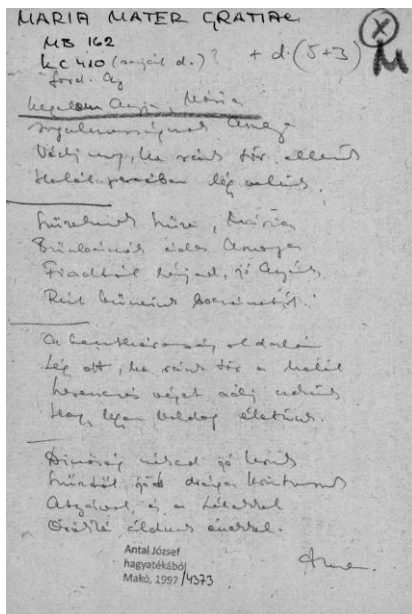 MARIA MATER GRATIAE
MB 162
KC 410 (saját d.)? + d. (5+3) X M
ford. Ag
Kegyelem Anyja, Mária
irgalmasságnak Anyja
Védj meg, ha ránk tör ellenünk
Halál percében légy velünk.
Szüzeknek Szüze, Mária
édes Anyja
Fiadtól kérjed, jó Anyánk
Réánk bűneink bocsánatját.
A oldalán
Légy ott, ha ránk tör a halál
Szerencsés véget adj nekünk
Hogy legyen boldog életünk.
Dicsőség néked jó Urunk
Szűztől drága Krisztusunk
Atyával, és a Lélekkel
Örökké áldunk énekkel.
Amen.
Antal József
hagyatékából
Makó, 1997/4373